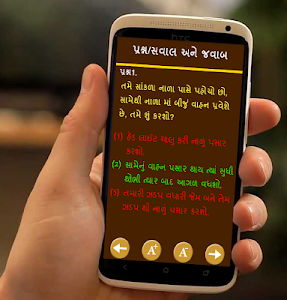 hTC
પ્રશ્ન/સવાલ અને જવાબ
પ્રશ્ન 1.
તમે સાંકળા નાળા પાસે પહોચો છો,
સામેથી નાળા માં બીજું વાહન પ્રવેશે
છે, તમે શું કરશો?
(1) હેડ લાઈટ ચાલુ કરી નાળુ પસાર
કરશો.
(2) સામેનું વાહન પસાર થાય ત્યાં સુધી
થોભી ત્યાર બાદ આગળ વધશો.
(3) તમારી ઝડપ વધારી જેમ બને તેમ
ઝડપ થી નાળુ પસાર કરશો.
A+
A-